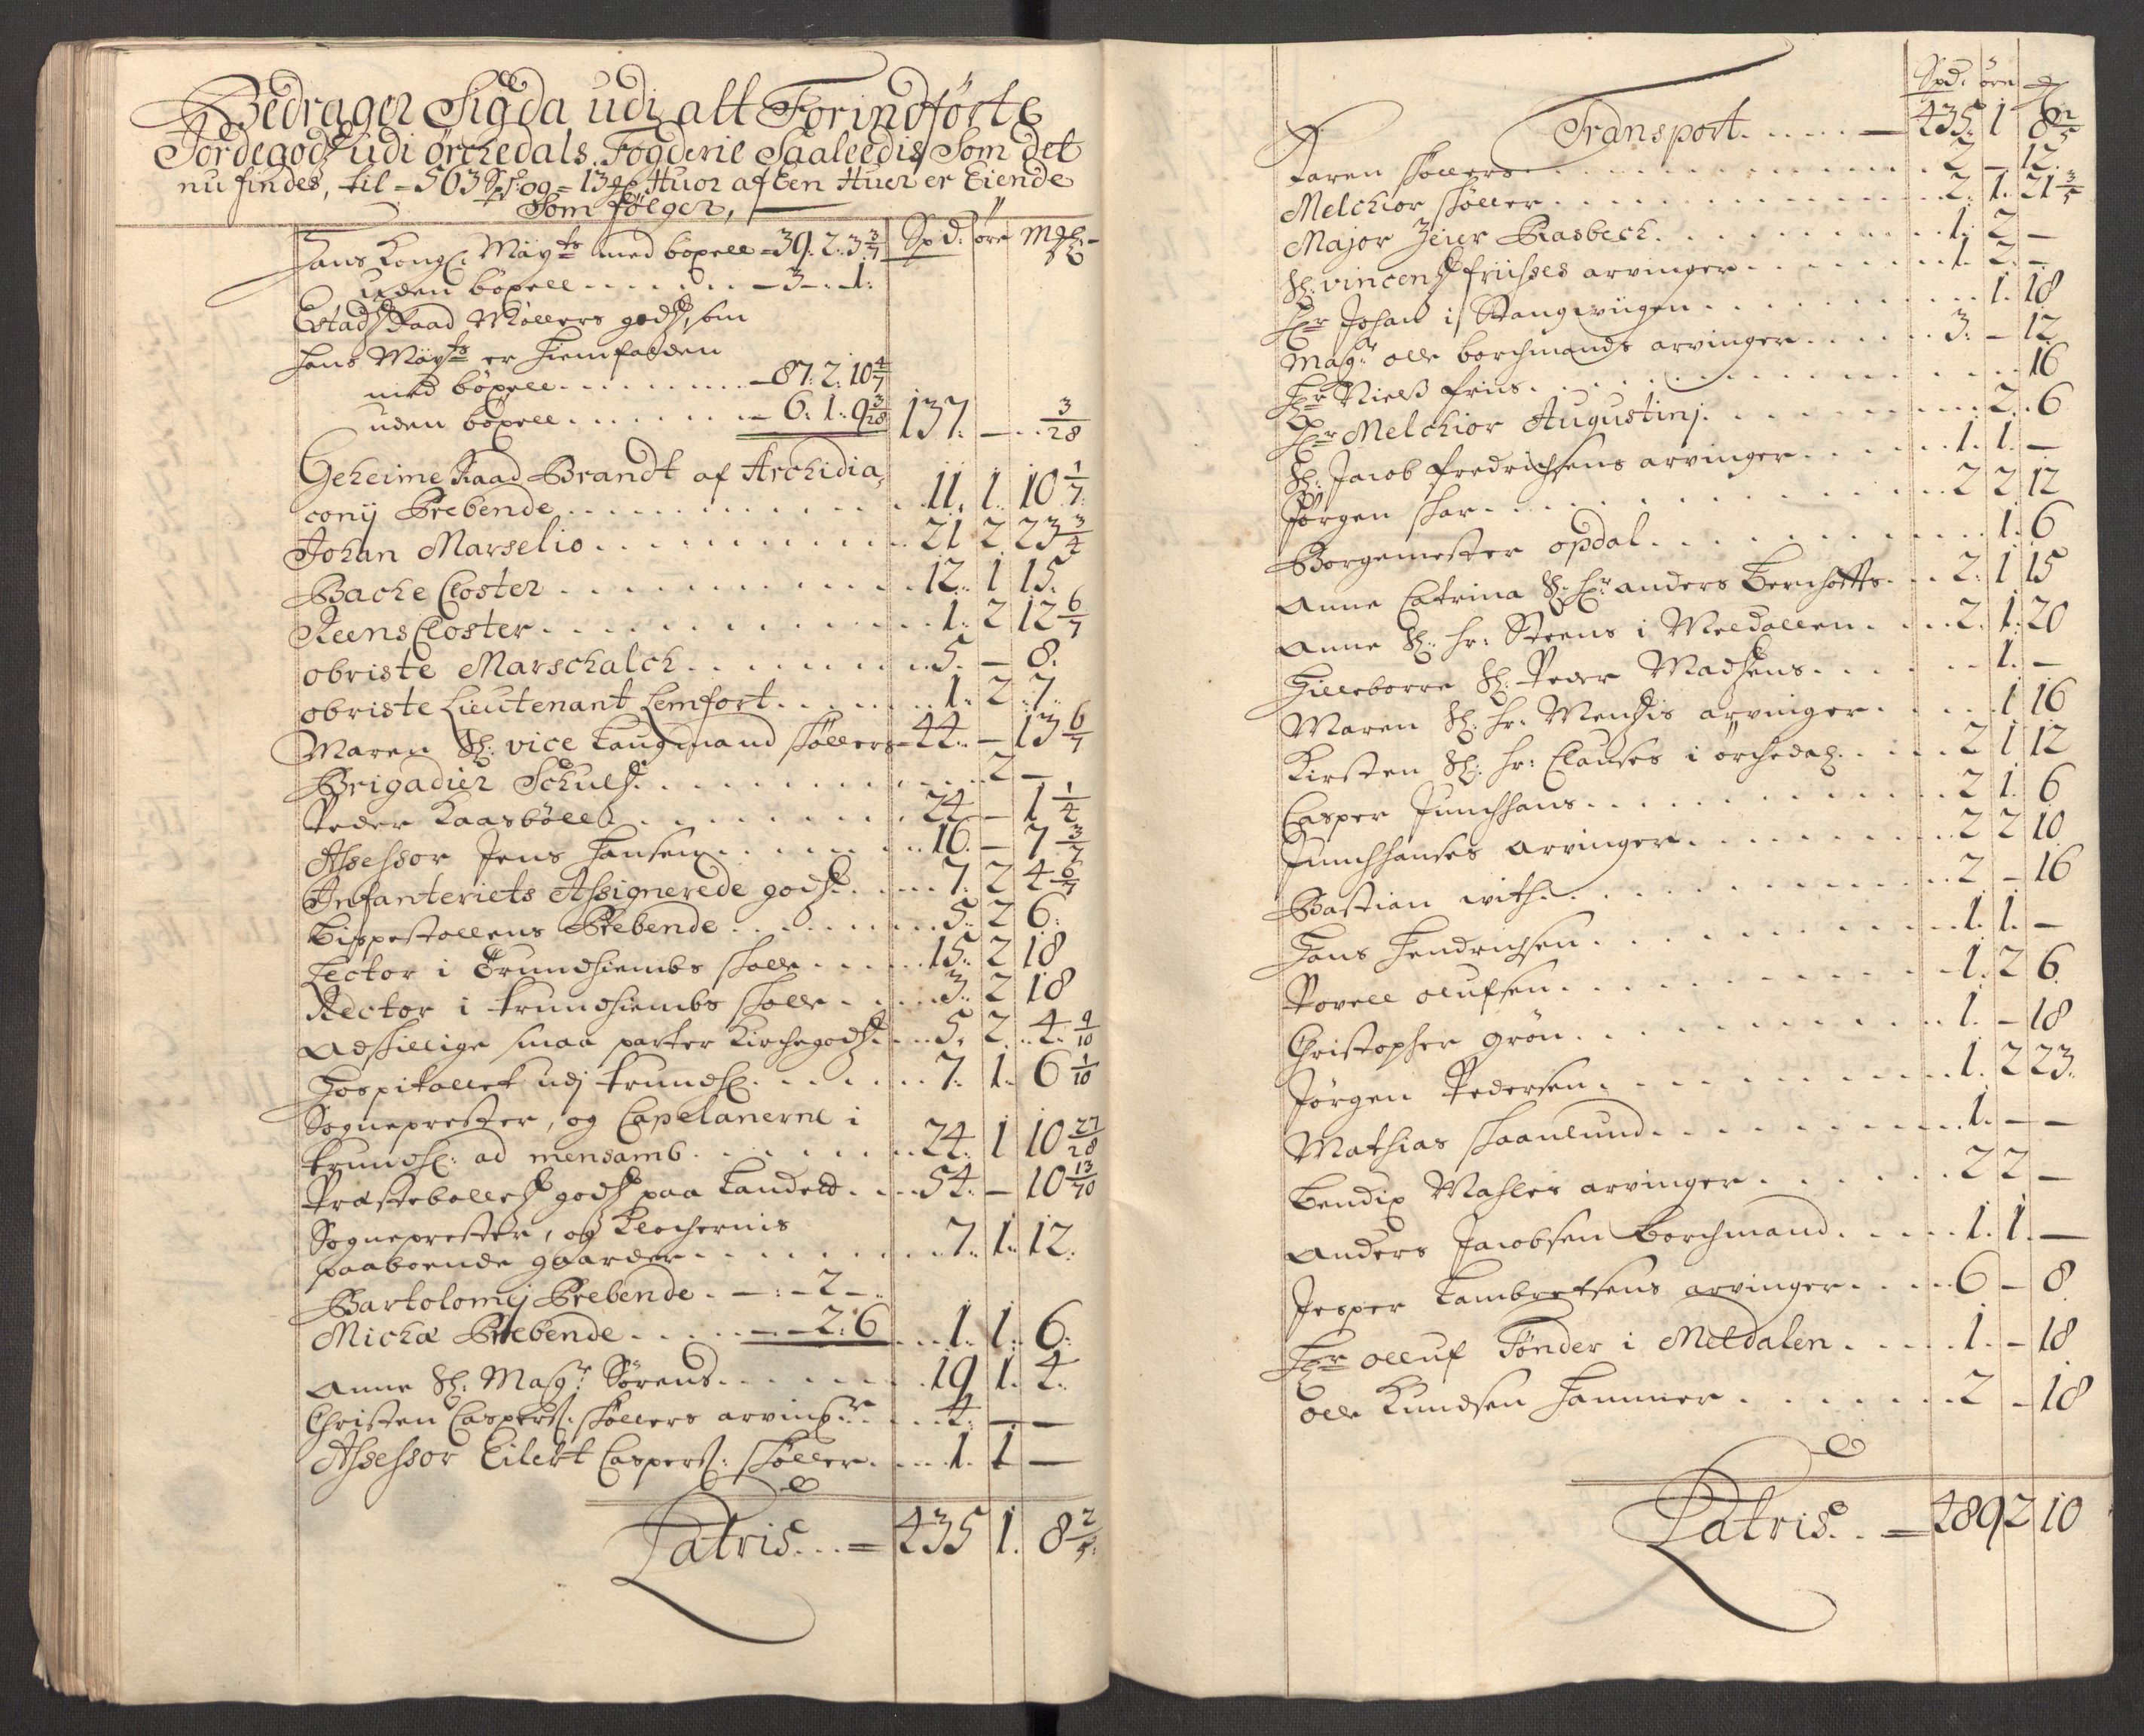 Bedrager Sigda udj alt Forindførte
Jordegodz udi ørchedals Fogderie Saaleedis Som det
nu findes, til = 503 Spd og = 13 mgl Huor af Een Huer er Eiende
Som følger,
Spd: øre Mgl:
Hans Kongl: Mayts med bøxell = 39. 2. 3 3/7
uden bøxell . . . . . . - 3 - . 1.
Etadz Raad Møllers godz, som
hans Mayts er hiemfalden
med bøxell . . . . . . . - 87. 2. 10 4/7
uden bøxell . . . . . . - 6. 1. 9 3/28 137. - . . 3/28
Geheime Raad Brandt af Archidia,
conij Prebende . . . . . . . . 11. 1. 10 1/7
Johan Marselio . . . . . . . . 21 2. 23 3/4
Bache Closter . . . . . . . . 12. 1 15.
Reens Closter . . . . . . . . 1. 2 12 6/7
obriste Marschalch . . . . . . . 5. - 8.
obriste Lieutenant Lemfort . . . . . 1. 2 7.
Maren Sl: vice Laugmand Søllers = 44. - 13 6/7
Brigadier Schultz . . . . . . . . 2 -
Peder Kaasbøll . . . . . . . . 24 - 1 1/4
Assessor Jens Hansen . . . . . . 16. - 7 3/7
Infanteriets Assignerede godz . . . . 7. 2 4 6/7
Bispestollens Prebende . . . . . . 5. 2 6.
Lector i Trundhiembs skolle . . . . 15. 2 18
Rector i trundhiembs skolle . . . . 3. 2 18
Adskillige smaa parter Kirchegodz . . . 5. 2. 4 9/10
Hospitallet udj trundhl . . . . . . 7. 1. 6 1/10
Sogneprester, og Capelanerne i
trundhl: ad mensamb . . . . . . 24. 1 10 27/28
Præsteballetz godz paa Landet . . . 54. - 10 13/70
Sogneprester, og Klocherniis
paaboende gaarder . . . . . . . 7. 1. 12.
Bartolomej Prebende . - : - 2 - .
Michæ Prebende . . . . . - - 2. 6 . . . 1. 1. 6.
Anne Sl: Magr Sørens . . . . . . 19 1. 4.
Christen Caspers: Søllers arving:r . . . 4. - -
Assessor Eilert Caspers: Søller . . . . 1. 1 -
Latris . . . = 435 1. 8 2/5
Spd. øre
Transport . . . . . - 435. 1 8 2/5
Karen Søllers . . . . . . . . 2 - 12.
Melchior Søller . . . . . . . . 2. 1. 21 3/5
Major Zeier Rasbech . . . . . . . 1. 2 -
Sl: vincentz friises arvinger . . . . . 1. 2. -
Hr Johan i Stangwiigen . . . . . . . 1. 18
Magr olle borchmands arvinger . . . . 3. - 12
Hr Nielß friis . . . . . . . . . 16
Hr Melchior Augustinj . . . . . . . 2. . 6
Sl: Jacob fredrichsens arvinger . . . . 1. 1. -
Jørgen Skar . . . . . . . . . 2 2 12
Borgemester opdal . . . . . . . . 1. 6
Anne Catrina Sl: Hr anders Berchotts . . . 2. 1 15
Anne Sl: hr: Steens i Meldallen . . . . 2. 1. 20
Hilleborre Sl: Peder Madsens . . . . . 1. -
Maren Sl: hr: Mentzis arvinger . . . . . 1 16
Kirsten Sl: hr: Clauses i ørchedal . . . . 2 1 12
Casper Junchhans . . . . . . . 2 1. 6
Junchhanses arvinger . . . . . . . 2 2 10
Bastian with . . . . . . . . . 2 - 16
Hans Hendrichsen . . . . . . . . 1. 1. -
Povell olufsen . . . . . . . . . 1. 2 6
Christopher grøn . . . . . . . . 1. - 18
Jørgen Pedersen . . . . . . . . 1. 2 23.
Mathias Skaanlund . . . . . . . . 1. - -
Bendix Mahles arvinger . . . . . . 2 2 -
Anders Jacobsen Borchmand . . . . . 1. 1. -
Jesper Lambretsens arvinger . . . . 6 - 8
Hr olluf Tønder i Meldalen . . . . . 1. - 18
olle Knudsen Hammer . . . . . . . 2 - 18
Latris . . = 489 2 10